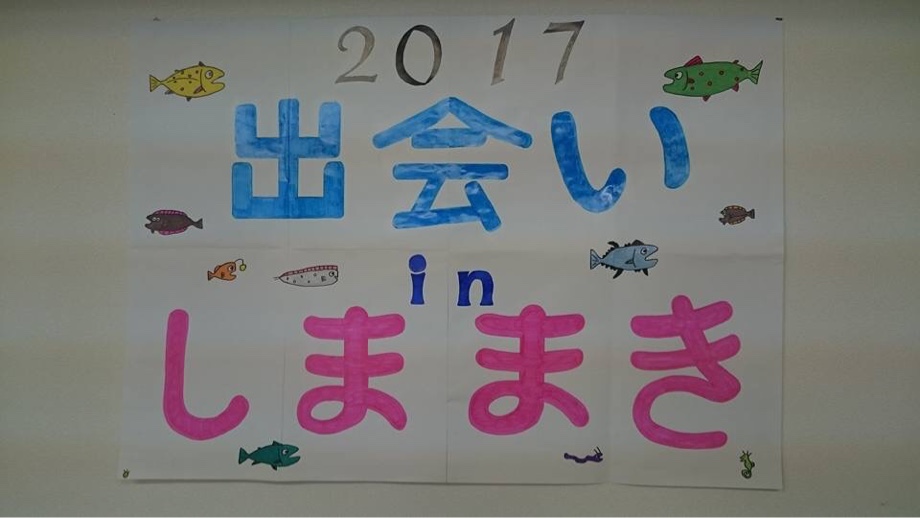 2017
出会い
in
しままき